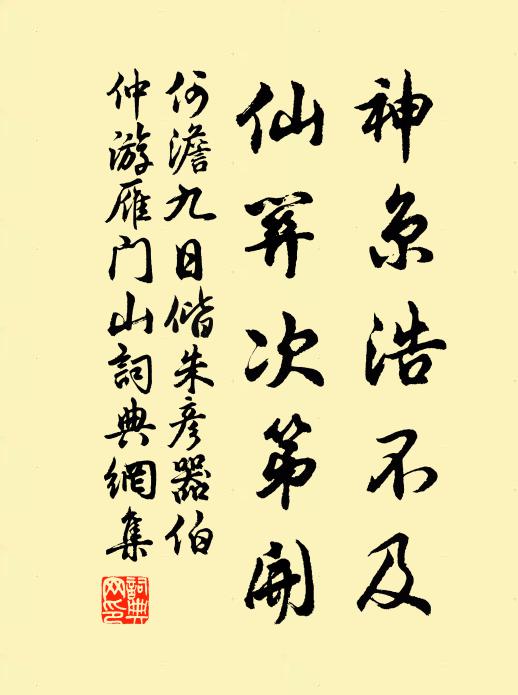 神京浩不及
仙次第開
何澹九日偕朱彥器伯
仲游雁门山詞典網集
詞典
网印